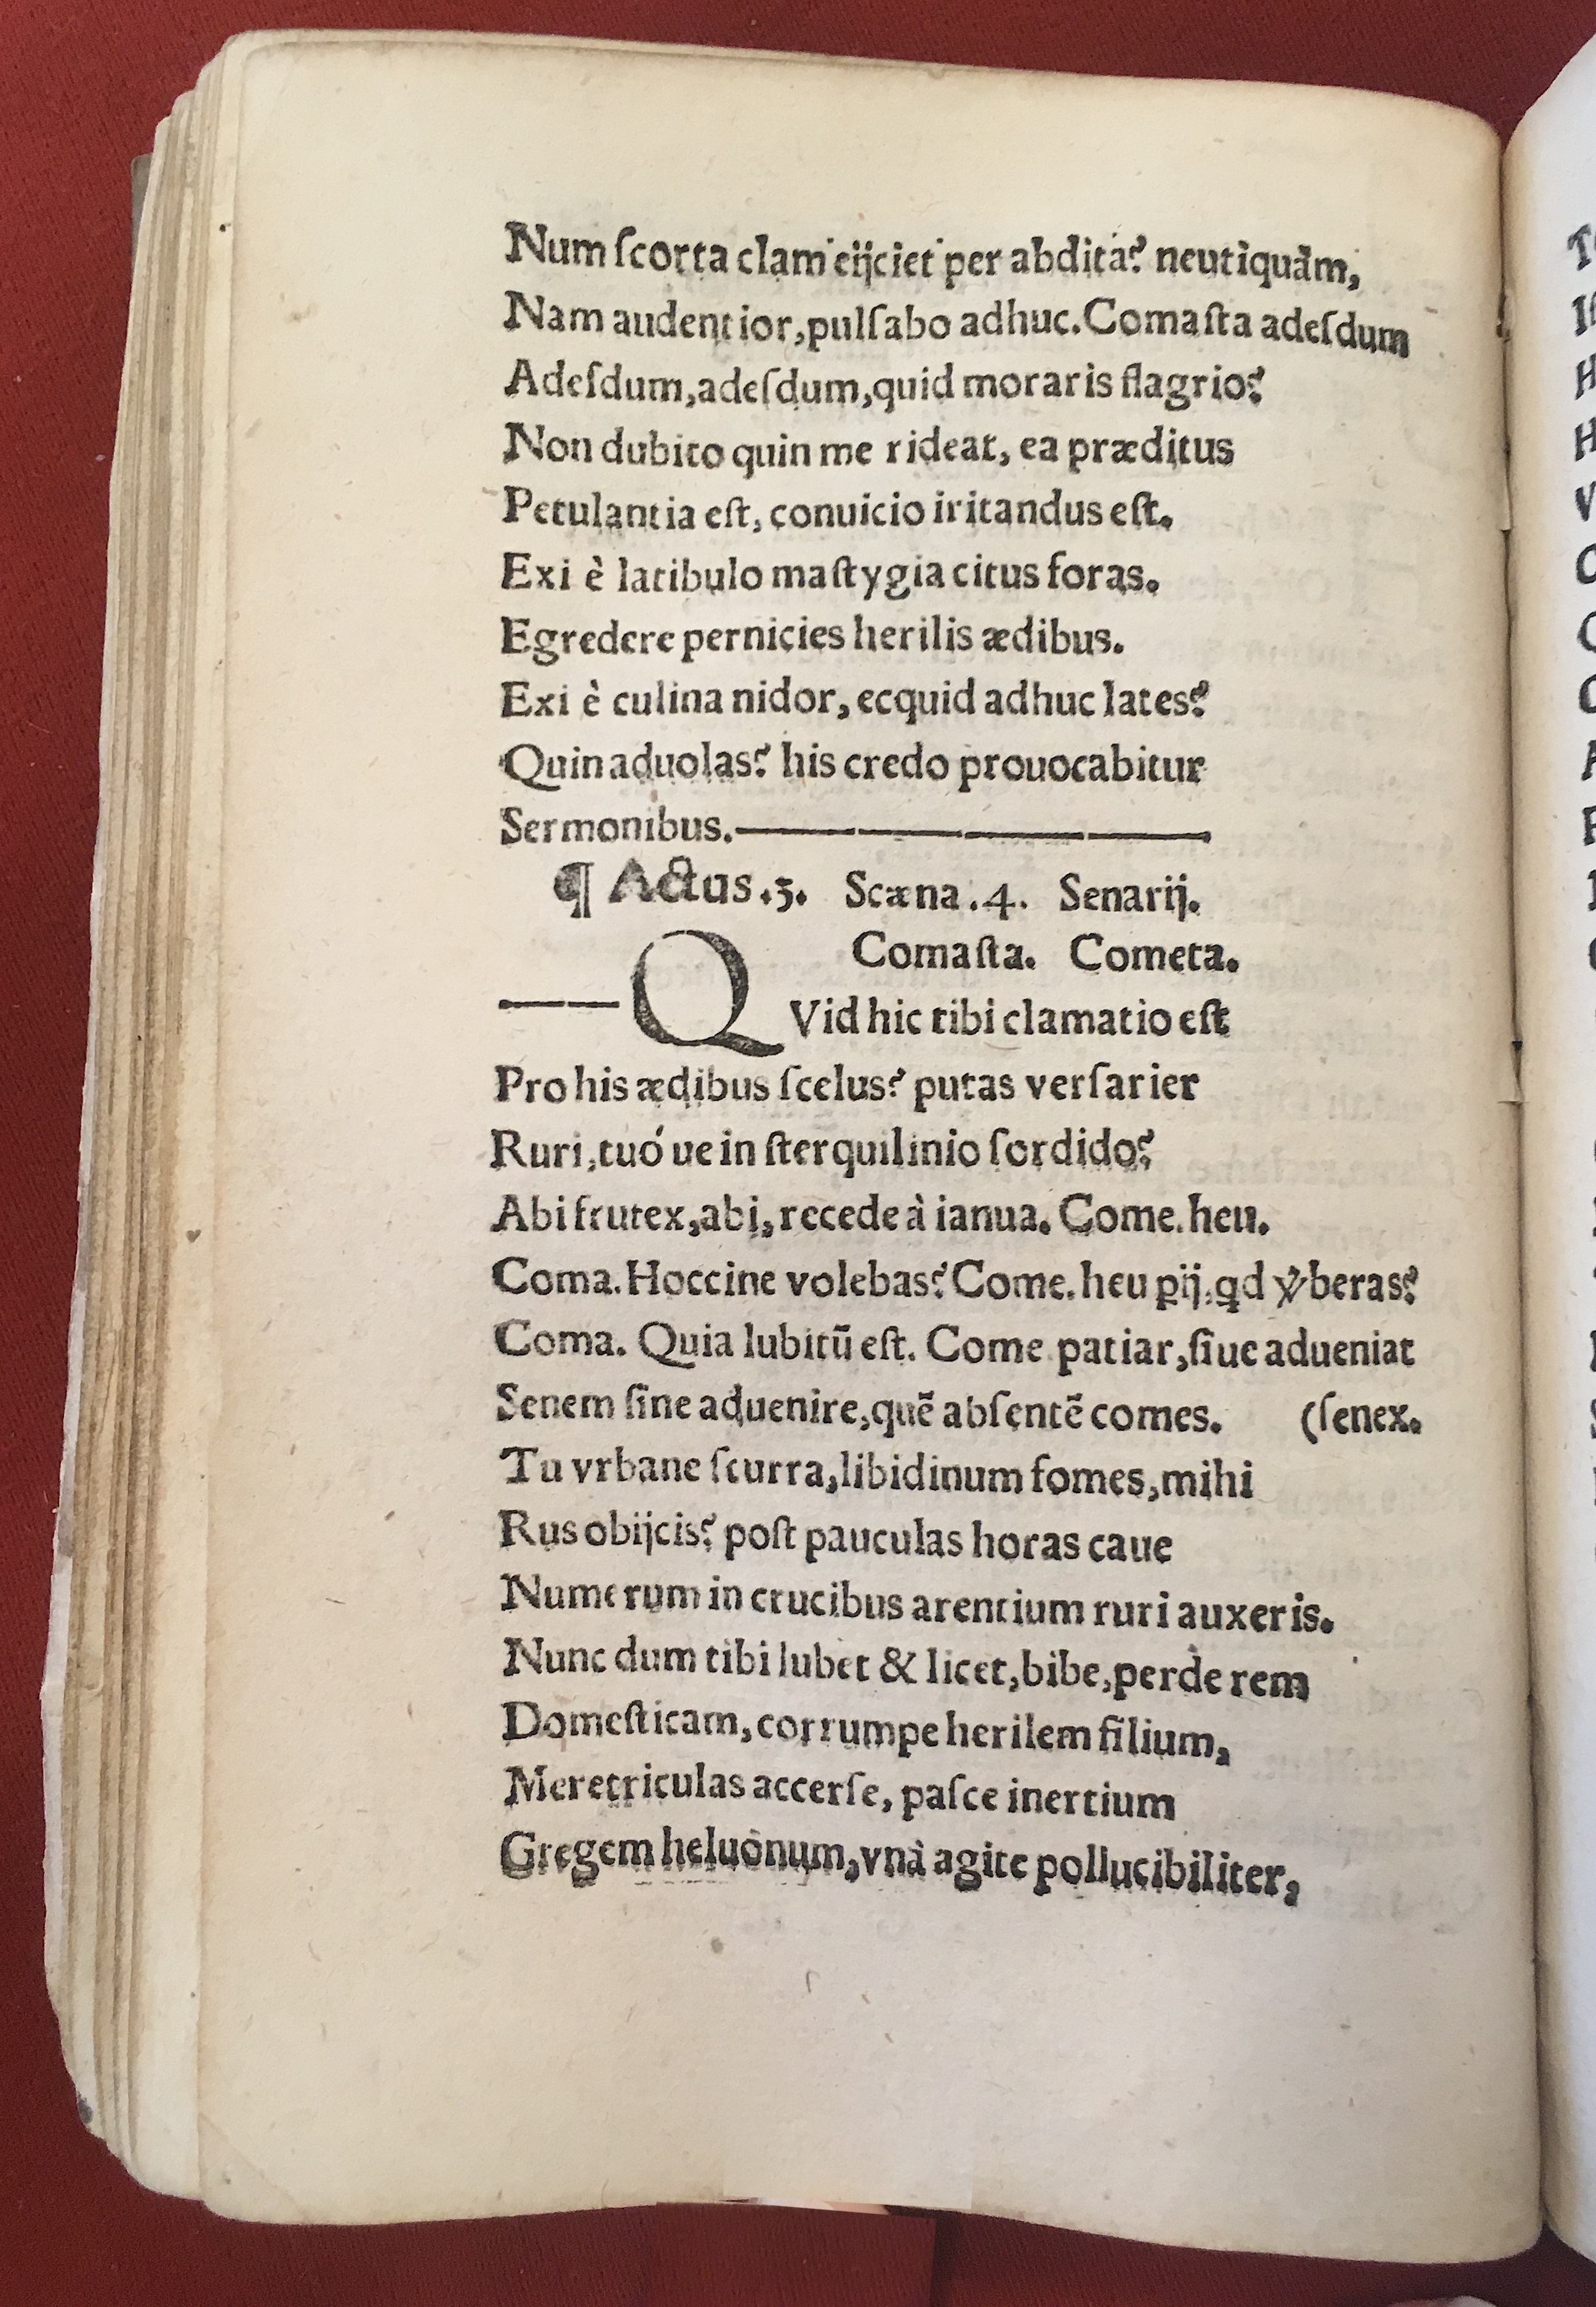 Num ſcorta clam eijciet per abdita? neutiquàm,
Nam audentior,pulſabo adhuc.Comaſta adeſdum
Adeſdum,adeſdum,quid moraris flagrio?
Non dubito quin me rideat, ea præditus
Petulantia eſt, conuicio iritandus eſt.
Exi è latibulo maſtygia citus foras.
Egredere pernicies herilis ædibus.
Exi è culina nidor, ecquid adhuc lates?
Quin aduolas? his credo prouocabitur
Sermonibus.————
¶ Actus.5. Scæna.4. Senarij.
Comaſta. Cometa.
——QVid hic tibi clamatio eſt
Pro his ædibus ſcelus? putas verſarier
Ruri,tuó ue in ſterquilinio ſordido?
Abi frutex,abi,recede à ianua. Come.heu.
Coma.Hoccine volebas? Come.heu ꝑij,qd ꝟberas?
Coma. Quia lubitū eſt. Come patiar,ſiue adueniat
Senem ſine aduenire,quẽ abſentẽ comes. (ſenex.
Tu vrbane ſcurra,libidinum fomes,mihi
Rus obijcis? poſt pauculas horas caue
Numerum in crucibus arentium ruri auxeris.
Nunc dum tibi lubet & licet,bibe,perde rem
Domeſticam,corrumpe herilem filium,
Meretriculas accerſe, paſce inertium
Gregem heluonum,vnà agite pollucibiliter,